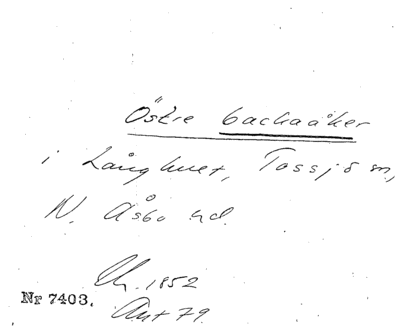 Östre bachaåker
i Långhult, Tossjö sn,
N. Åsbo hd.
Ch. 1852
Ant 79.
Nr 7403.